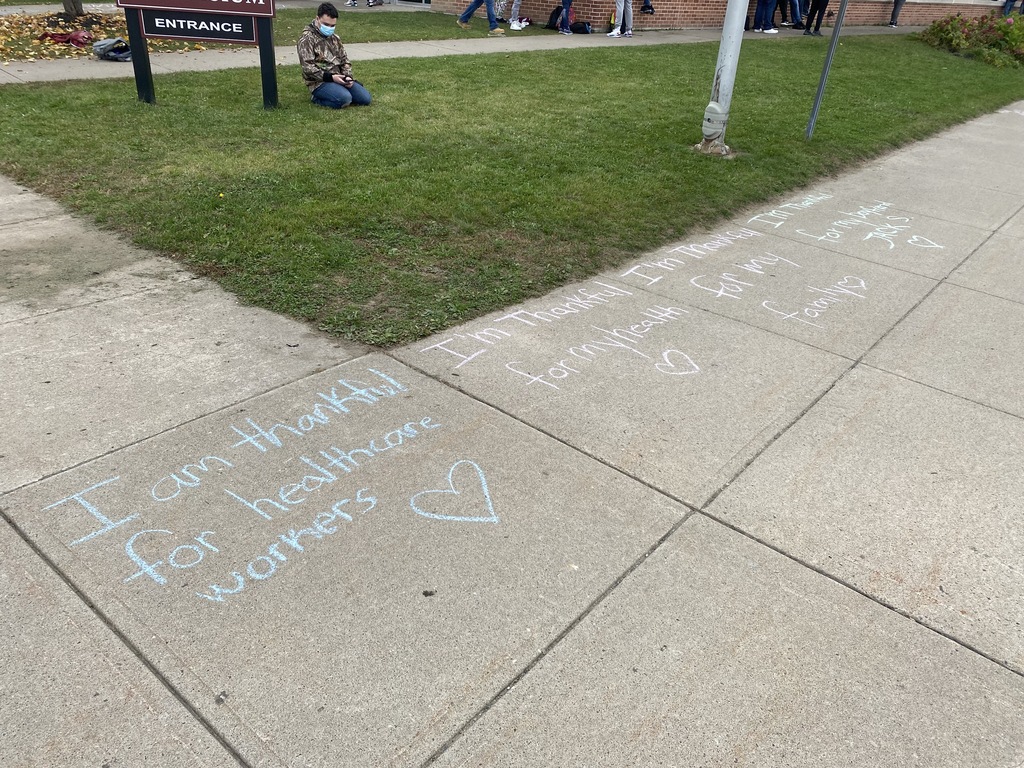 ENTRANCE
I am thankful
for healthcare
workers
I'm Thankful
for my health
I'm Thankful
for my
family
I'm
for my